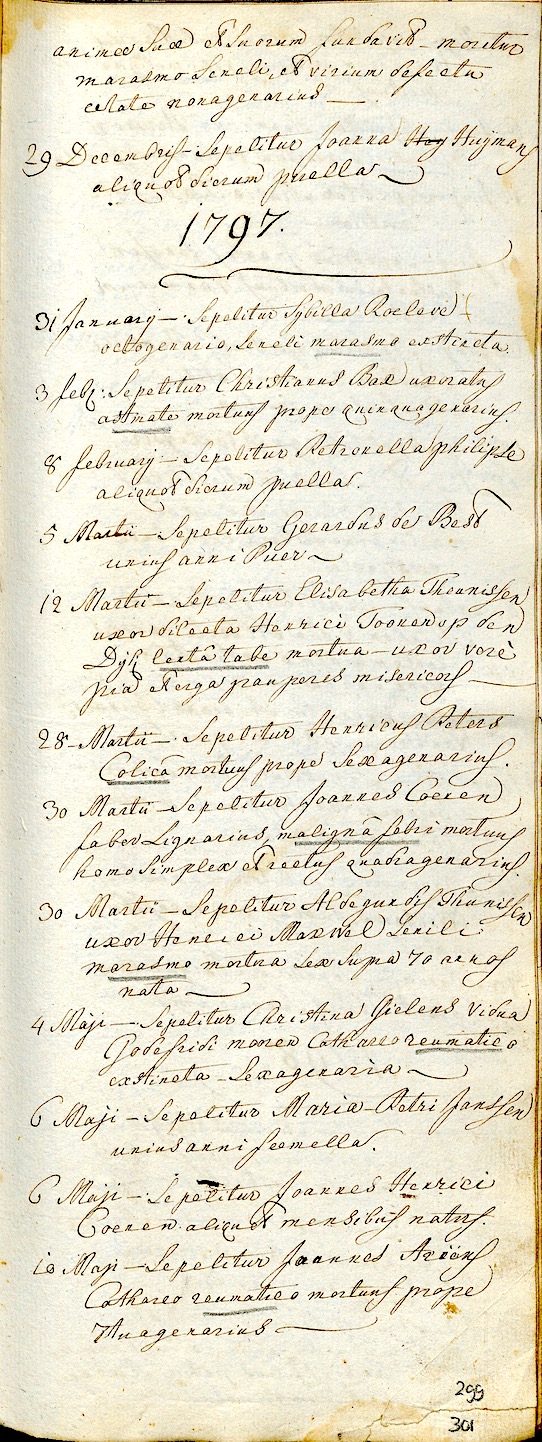 animae suae et suorum fundavit - moritur
marasmo senili, et virium defectu
aetate nonagenarius —
29 Decembris - Sepelitur Joanna Hey Huijmans
aliquot dierum puella
1797.
31 January —. Sepelitur Sybilla Roeleve
octogenario, senili marasmo exstincta.
3 feb: Sepelitur Christianus Bax uxoratus
astmate mortuus prope quinquagenarius.
8 february — Sepelitur Petronella philipse
aliquot dierum puella.
5 Martii —. Sepelitur Gerardus de Best
unius anni Puer —
12 Martii —. Sepelitur Elisabetha Theunissen
uxor dilecta Henrici Toonen op den
Dijk lentâ tabe mortua — uxor verè
pia et erga pauperes misericors —
28 - Martii —. Sepelitur Henricus Peters
Colicâ mortuus prope Sexagenarius.
30 Martii — Sepelitur Joannes Coenen
faber Lignarius, malignâ febri mortuus
homo simplex et rectus quadragenarius.
30 Martii — Sepelitur Aldegundis Thunissen
uxor Henrici Maxwel senili
marasmo mortua sex supra 70 annos
nata —
4 Maji — Sepelitur Christina Gielens vidua
Godefridi monen Catharro reumatico
exstincta - Sexagenaria —
6 Maji — Sepelitur Maria Petri Janssen
unius anni foemella.
6 Maji —. Sepelitur Joannes Henrici
Coenen aliquot mensibus natus.
10 Maji — Sepelitur Joannes Ariäns
Catharro reumatico mortuus prope
7tuagenarius —
299
301